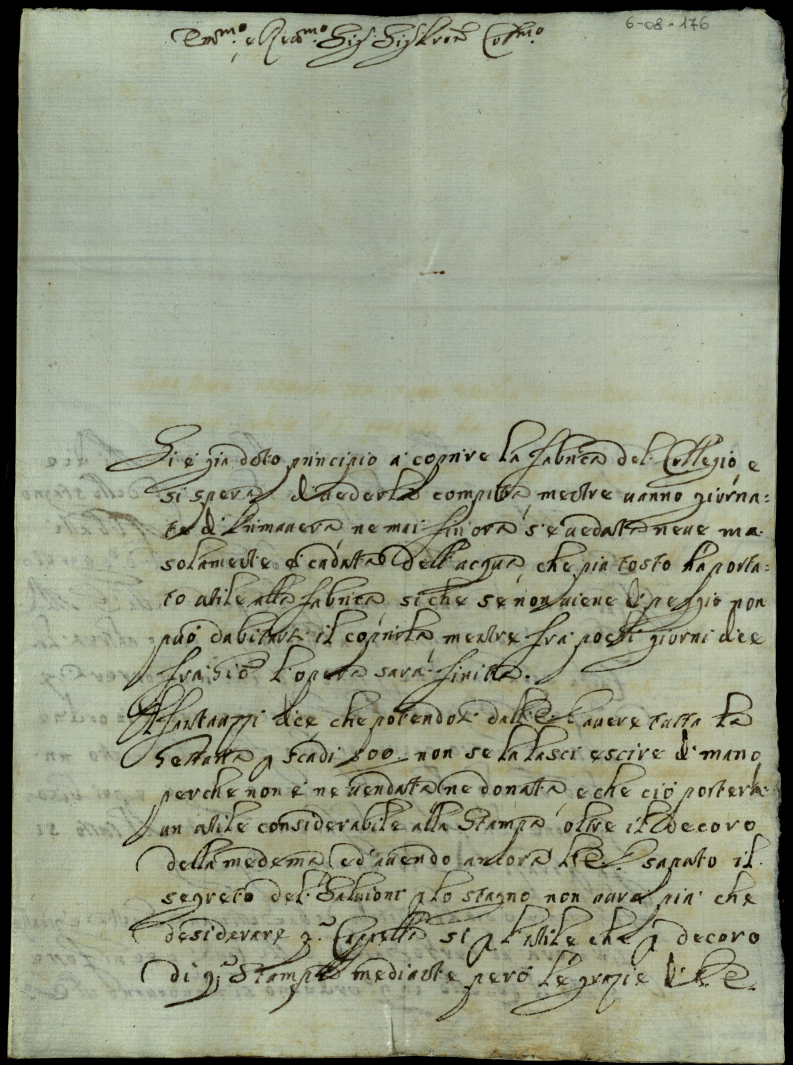 6-08-176
Em.mo e Re.mo Sig. Sig. Pron Col.mo
Si è gia dato principio a coprire la fabrica del Collegio, e
si spera di vederla compita, mentre vanno giorna=
te di Primavera, ne mai fin'ora s'è vedata neve ma
solamente è cadata dell'acqua, che più tosto ha porta=
to utile alla fabrica, si che se non viene di peggio non
può dubitarsi il coprirla, mentre fra pochi giorni dice
fra Gio: l'opera sarà finita.
dice che potendosi dall'E.V. avere tutta la
per scadi 800 non se la lasci escire di mano
perche non è ne vendata, ne donata, e che ciò porterà
un utile considerabile alla Stampa, oltre il decoro
della medema, ed avendo ancora l'E.V. saputo il
segreto del Salvioni per lo stagno non avrà più che
desiderare si per l'utile che per decoro
di q. Stampa mediante però le grazie di V.E.